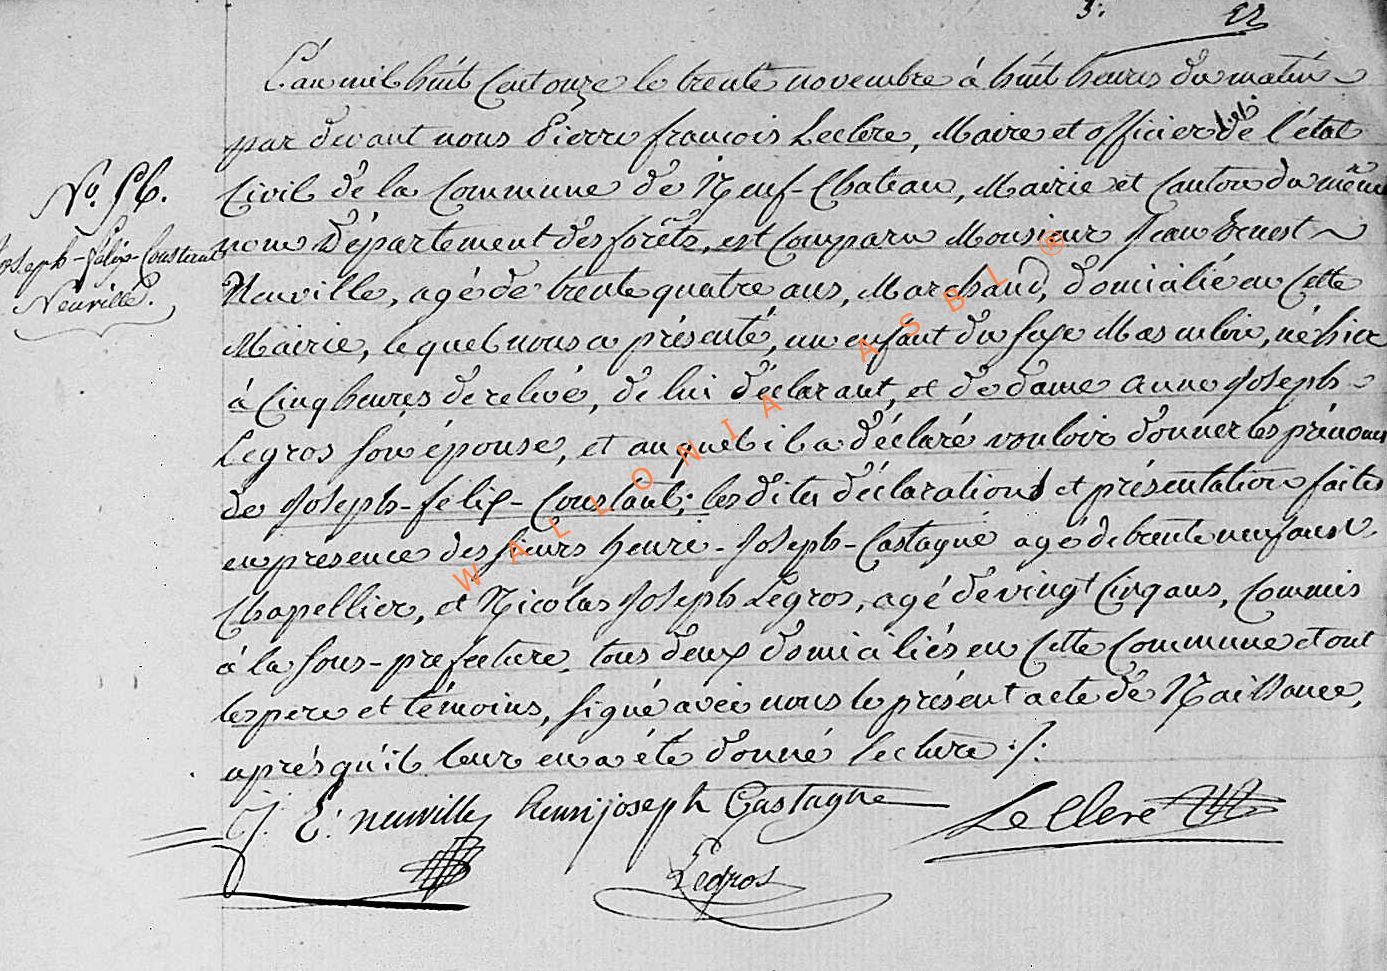 L'an mil huit Cent onze le trente novembre à huit heures du matin
par devant nous Pierre françois Leclere, Maire et officier de l'état
Civil de la Commune de Neuf-Chateau, Mairie et Canton du même
nom Département des forêts, est Comparu Monsieur Jean Ernest
Neuville, agé de trente quatre ans, Marchand, domicilié en Cette
Mairie, lequel nous a présenté, un enfant du sexe Masculin, né hier
à Cinq heures de relevé, de lui déclarant, et de dame anne Joseph
Legros son épouse, et auquel il a déclaré vouloir donner les prénoms
de Joseph-félix-Constant; les dites déclarations et présentation faites
en presence des sieurs henri-Joseph-Castagne agé de trente neuf ans
Chapellier, et Nicolas Joseph Legros, agé de vingt Cinq ans, Commis
à la sous-prefecture, tous deux domiciliés en Cette Commune et ont
les pere et témoins, signé avec nous le présent acte de Naissance,
après qu'il leur en a été donné lecture ./.
No. 56.
Joseph-félix-Constant
Neuville.
J. E: neuville henri joseph Castagne Le Clere
Legros
WALLONIA ASBL ®